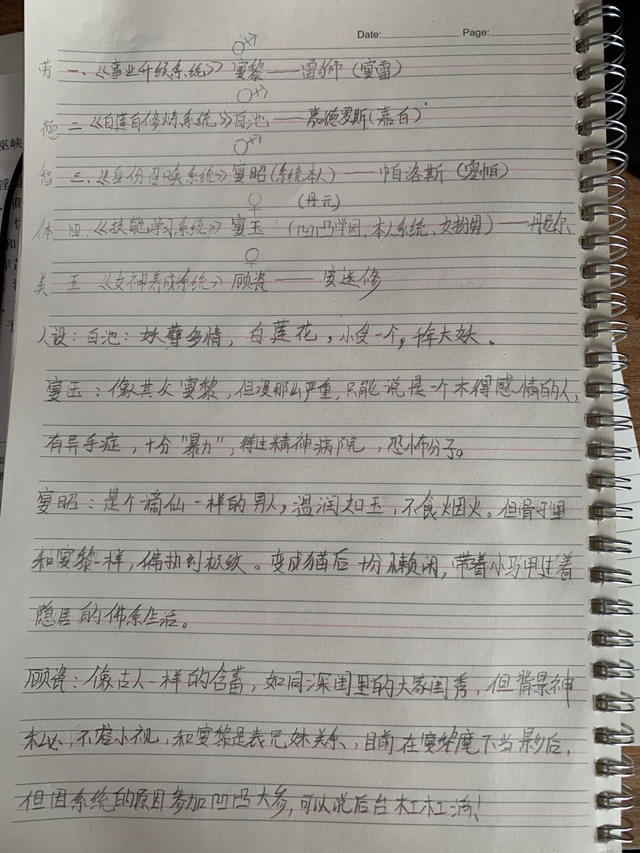 Date: Page:
♂
劳 一、《事业升级系统》宴黎——雷狮（宴雷）
♂
德 二《白莲自修炼系统》白池——嘉德罗斯(嘉白)
♂
智 三、《身份置换系统》宴昭(系统本人)——帕洛斯（宴帕）
♀ (丹元)
体 四、《技能学习系统》宴玉（凹凸学园、本人系统、女扮男）——丹尼尔
♀
美 五《女神养成系统》顾瓷——安迷修
人设：白池：妖孽多情，白莲花，小受一个，千年大妖。
宴玉：像其父宴黎，但没那么严重，只能说是一个木得感情的人，
有异手症，十分“暴力”，得过精神病院，恐怖分子。
宴昭：是个谪仙一样的男人，温润如玉，不食烟火。但骨子里
和宴黎一样，偏执到极致。变成猫后十分懒闲，带着小马甲过着
隐居的佛系生活。
顾瓷：像古人一样的含蓄，如同深闺里的大家闺秀，但背景神
秘，不容小视，和宴黎是表兄妹关系，目前在宴黎麾下当影后，
但因系统的原因参加凹凸大参，可以说后台杠杠滴！
巫峡
淫
和